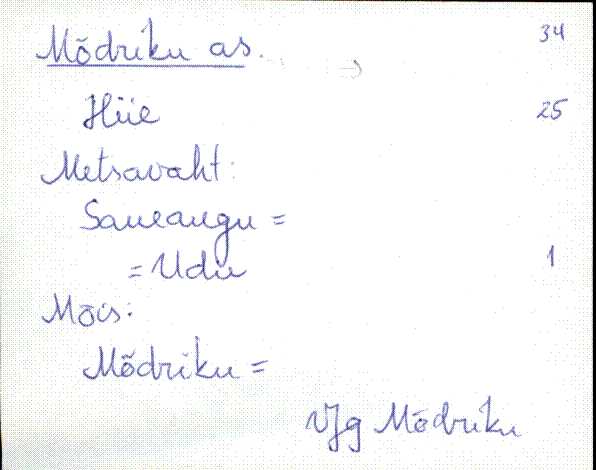 Mõdriku as. 34
Hiie 25
Metsavaht:
Saueaugu =
= Udu 1
Mõis:
Mõdriku =
VJg Mõdriku